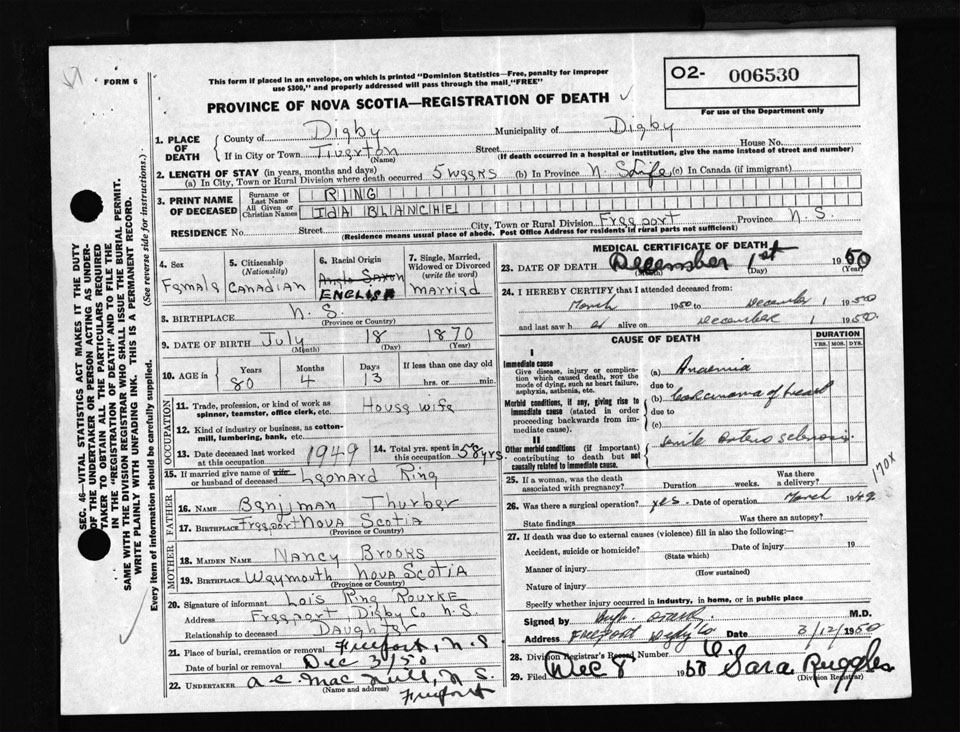 FORM 6
This form if placed in an envelope, on which is printed "Dominion Statistics—Free, penalty for improper
use $300," and properly addressed will pass through the mail "FREE"
O2- 006530
For use of the Department only
PROVINCE OF NOVA SCOTIA—REGISTRATION OF DEATH
1. PLACE OF DEATH
County of Digby Municipality of Digby
If in City or Town Tiverton (Name) Street House No.
(If death occurred in a hospital or institution, give the name instead of street and number)
2. LENGTH OF STAY (in years, months and days)
(a) In City, Town or Rural Division where death occurred 5 weeks (b) In Province N. S. Life (c) In Canada (if immigrant)
3. PRINT NAME OF DECEASED
Surname or Last Name RING
All Given or Christian Names IDA BLANCHE
RESIDENCE No. Street City, Town or Rural Division Freeport Province N. S
(Residence means usual place of abode. Post Office Address for residents in rural parts not sufficient)
4. Sex Female
5. Citizenship (Nationality) Canadian
6. Racial Origin Anglo Saxon ENGLISH
7. Single, Married, Widowed or Divorced (write the word) Married
8. BIRTHPLACE N. S. (Province or Country)
9. DATE OF BIRTH July 18 1870
(Month) (Day) (Year)
10. AGE in Years Months Days If less than one day old
80 4 13 hrs. or min.
OCCUPATION
11. Trade, profession, or kind of work as spinner, teamster, office clerk, etc. House wife
12. Kind of industry or business, as cotton-mill, lumbering, bank, etc.
13. Date deceased last worked at this occupation 1949
14. Total yrs. spent in this occupation 58 yrs.
15. If married give name of wife or husband of deceased Leonard Ring
FATHER
16. NAME Benjiman Thurber
17. BIRTHPLACE Freeport NOVA SCOTIA
(Province or Country)
MOTHER
18. MAIDEN NAME Nancy Brooks
19. BIRTHPLACE Weymouth NOVA SCOTIA
(Province or Country)
20. Signature of informant Lois Ring Rourke
Address Freeport Digby Co N.S.
Relationship to deceased Daughter
21. Place of burial, cremation or removal Freeport, N. S
Date of burial or removal Dec 3/50
22. UNDERTAKER
(Name and address)
Freeport
MEDICAL CERTIFICATE OF DEATH
23. DATE OF DEATH December 1st 1950
(Month) (Day) (Year)
24. I HEREBY CERTIFY that I attended deceased from:
March 1950 to December 1 1950
and last saw h er alive on December 1 1950.
CAUSE OF DEATH
DURATION
YRS. MOS. DYS.
I
Immediate cause
Give disease, injury or complication which caused death, NOT the mode of dying, such as heart failure, asphyxia, asthenia, etc.
Morbid conditions, if any, giving rise to immediate cause (stated in order proceeding backwards from immediate cause).
II
Other morbid conditions (if important) contributing to death but not causally related to immediate cause.
(a) Anaemia
due to
(b) Carcinoma of breast
due to
(c)
Senile
170X
25. If a woman, was the death associated with pregnancy? Duration weeks. Was there a delivery?
26. Was there a surgical operation? yes - Date of operation March 1949
State findings Was there an autopsy?
27. If death was due to external causes (violence) fill in also the following:
Accident, suicide or homicide? Date of injury 19
(State which)
Manner of injury
(How sustained)
Nature of injury
Specify whether injury occurred in industry, in home, or in public place
Signed by M.D.
Address Freeport Digby Co Date 3/12/1950
28. Division Registrar's Record Number 6
29. Filed Dec 8 1950 Sara Ruggles
(Division Registrar)
SEC. 46—VITAL STATISTICS ACT MAKES IT THE DUTY
OF THE UNDERTAKER OR PERSON ACTING AS UNDER-
TAKER TO OBTAIN ALL THE PARTICULARS REQUIRED
IN THE "REGISTRATION OF DEATH" AND TO FILE THE
SAME WITH THE DIVISION REGISTRAR WHO SHALL ISSUE THE BURIAL PERMIT.
WRITE PLAINLY WITH UNFADING INK. THIS IS A PERMANENT RECORD.
Every item of information should be carefully supplied. (See reverse side for instructions.)